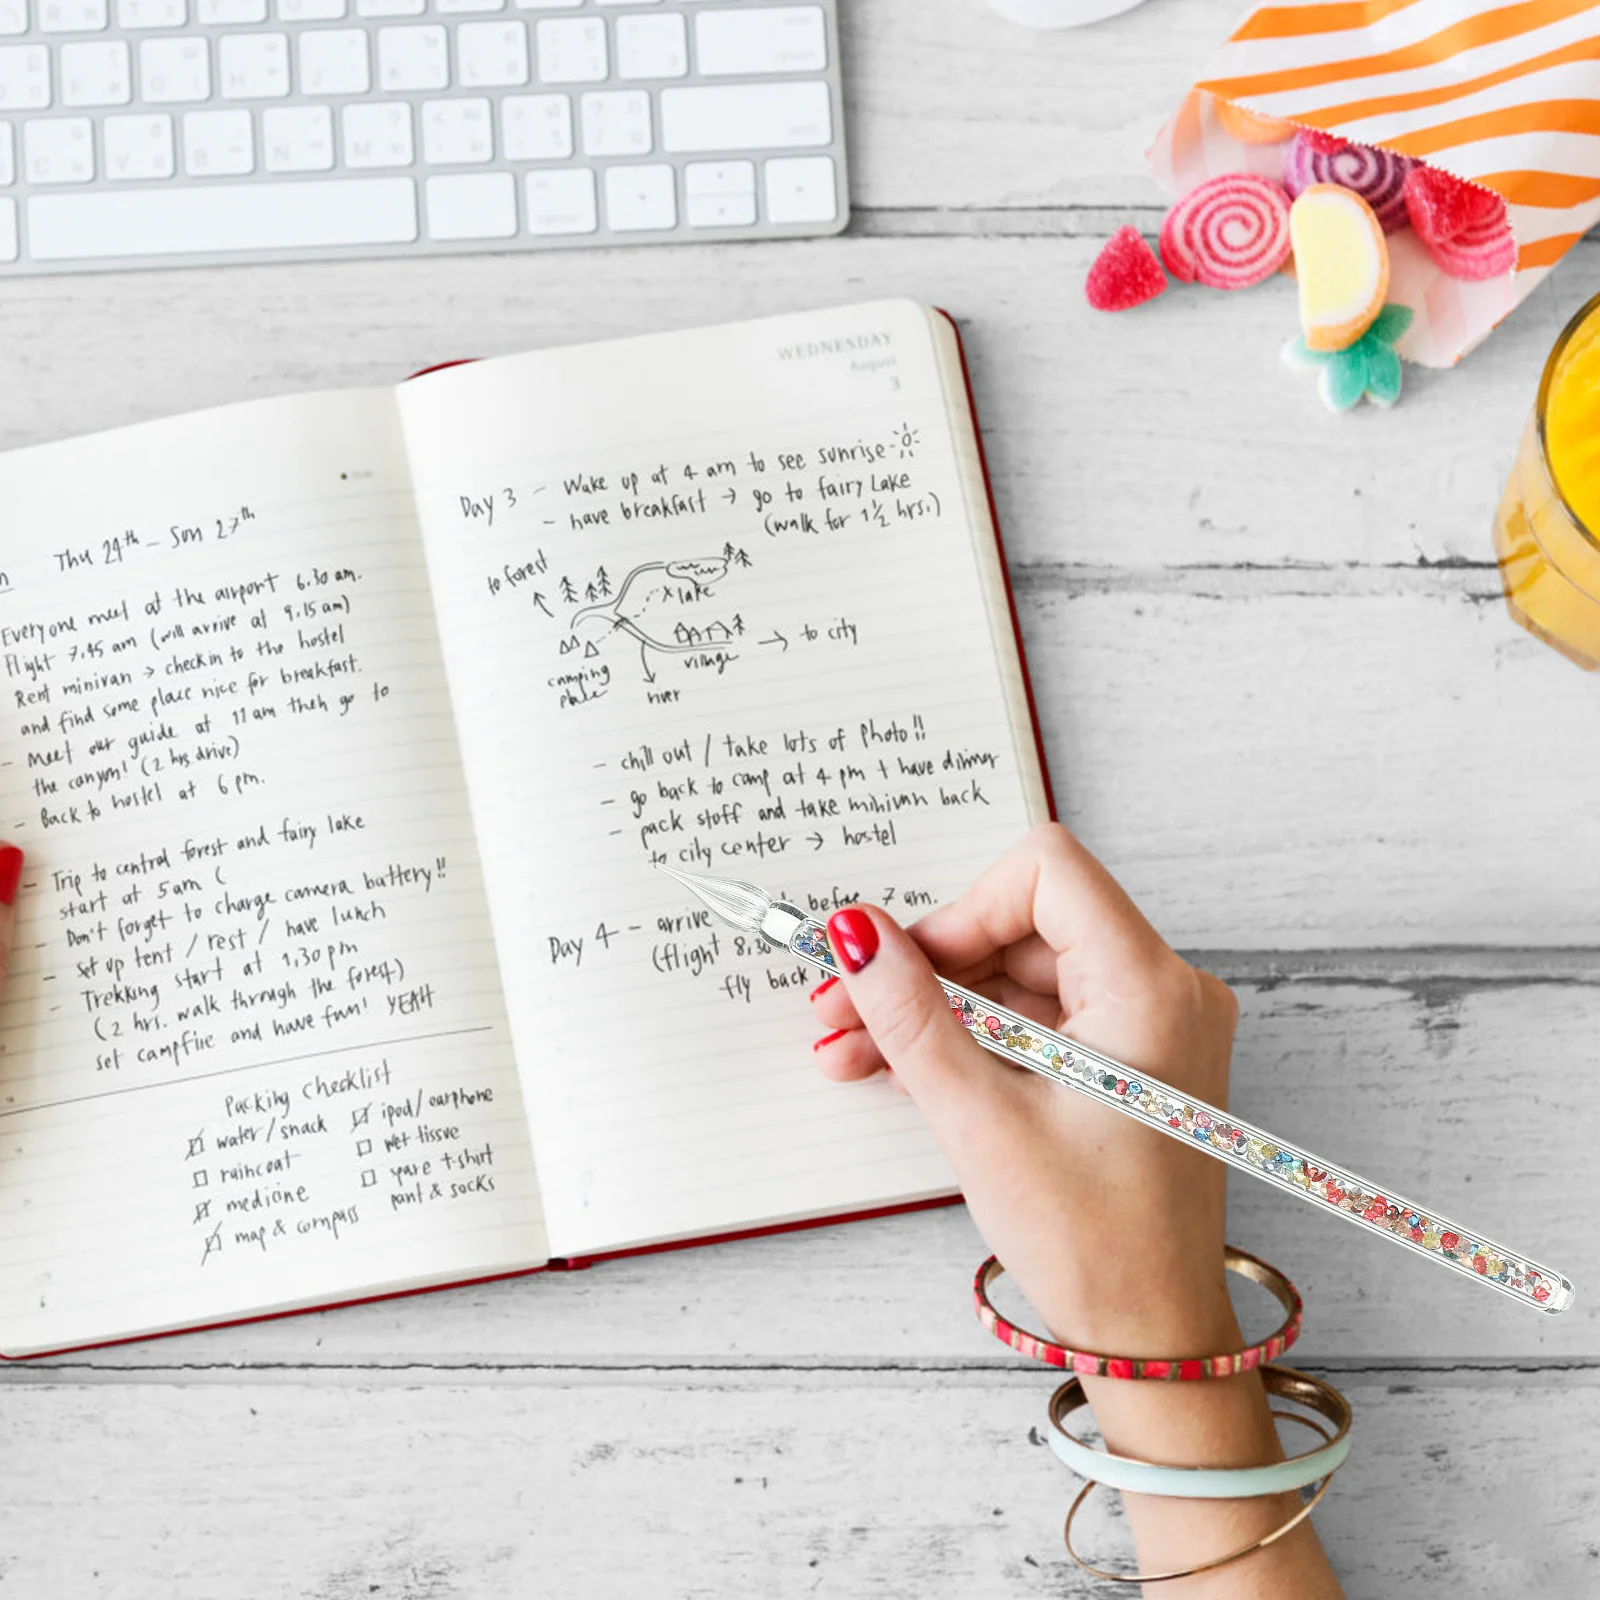 Thu 24th – Sun 27th
Everyone meet at the airport 6.30 am.
Flight 7.45 am (will arrive at 9.15 am)
Rent minivan → checkin to the hostel
and find some place nice for breakfast.
- Meet our guide at 11 am then go to
the canyon! (2 hrs drive)
- Back to hostel at 6 pm.
- Trip to central forest and fairy lake
start at 5 am (
- Don't forget to charge camera battery!!
- set up tent / rest / have lunch
- Trekking start at 1,30 pm
(2 hrs. walk through the forest)
set campfire and have fun! YEAH
Packing checklist
water/snack
raincoat
medicine
map & compass
ipod/earphone
wet tissue
spare t-shirt
pant & socks
WEDNESDAY
August
3
Day 3 - Wake up at 4 am to see sunrise
- have breakfast → go to fairy Lake
(walk for 1 1/2 hrs.)
to forest
lake
to city
village
camping
place
river
- chill out / take lots of photo!!
- go back to camp at 4 pm + have dinner
- pack stuff and take minivan back
to city center → hostel
Day 4 - arrive before 7 am.
(flight 8.30
fly back